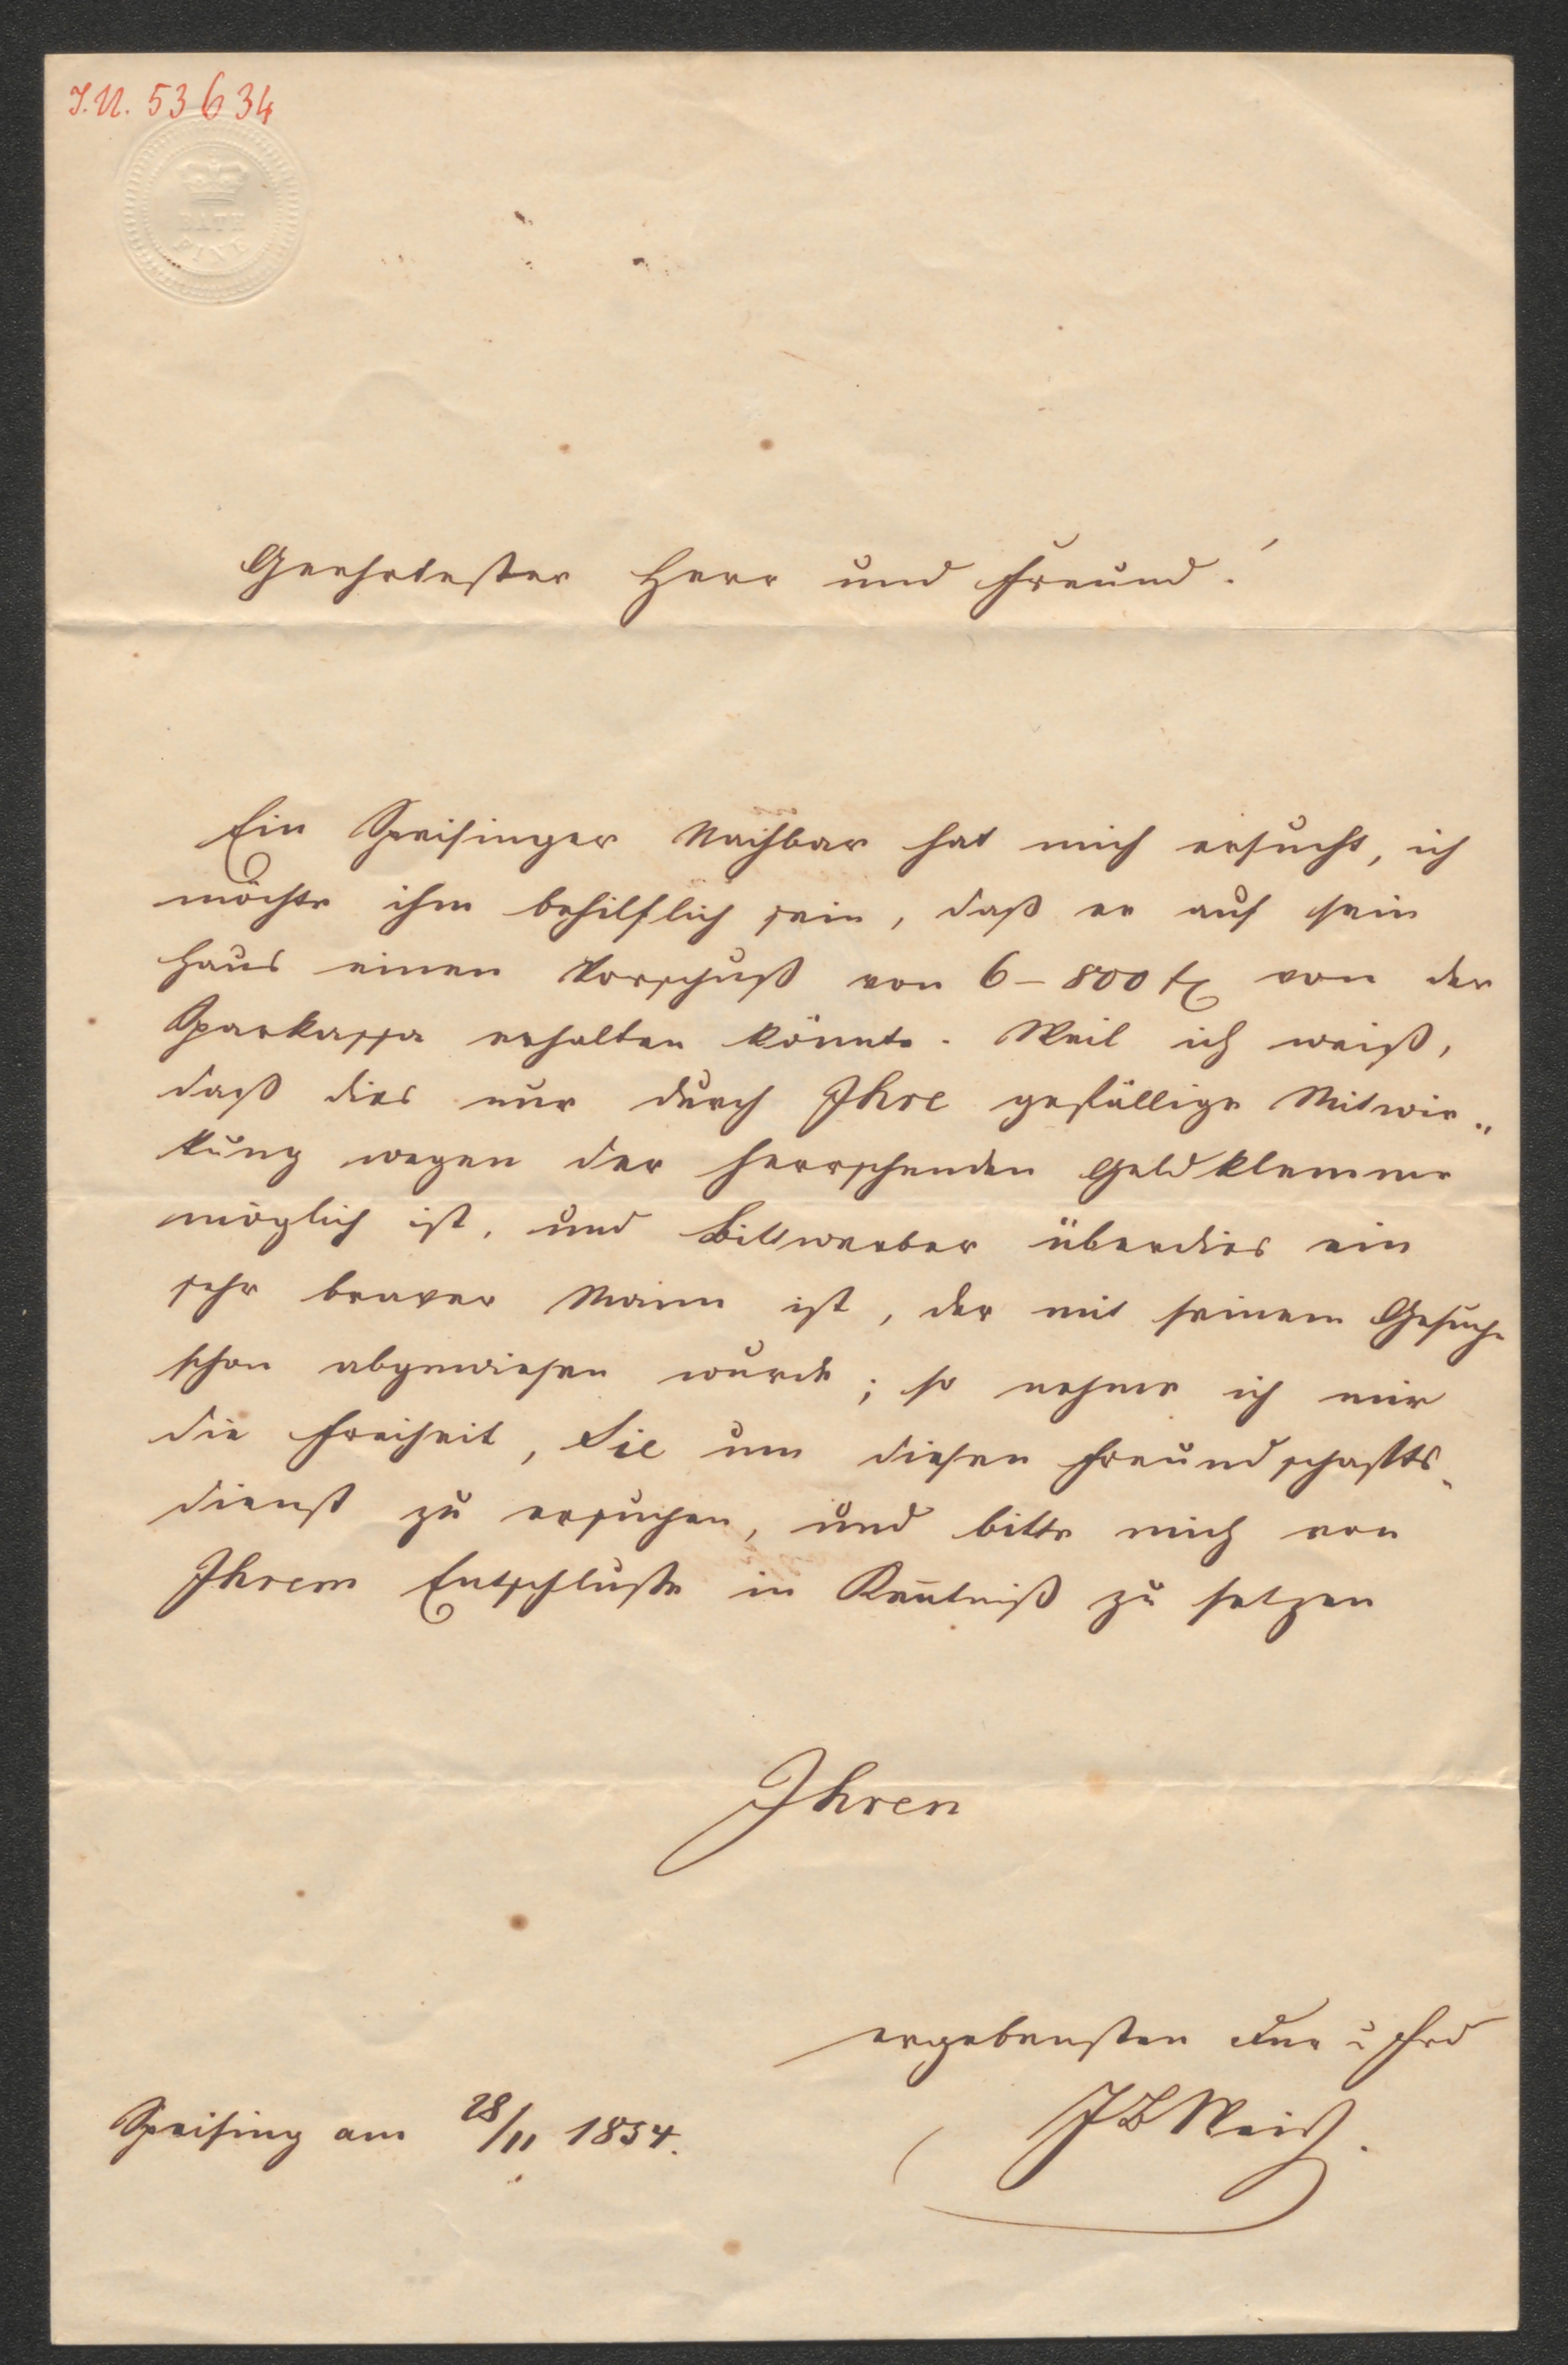 I.N. 53634
BATH
FINE
Geehrtester Herr und Freund!
Ein Speisinger Nachbar hat mich ersucht, ich
möchte ihm behilflich sein, daß er auf sein
Haus einen Vorschuß von 6–800 fl von der
Sparkassa erhalten könnte. Weil ich weiß,
daß dies nur durch Ihre gefällige Mitwir„
kung wegen der herrschenden Geldklemme
möglich ist, und Bittwerber überdies ein
sehr braver Mann ist, der mit seinem Gesuche
schon abgewiesen wurde; so nehme ich mir
die Freiheit, Sie um diesen Freundschafts„
dienst zu ersuchen, und bitte mich von
Ihrem Entschluße in Keñtniß zu setzen
Ihren
ergebensten Dnr u Frd
JB Weiß.
Speising am 28/11 1854.